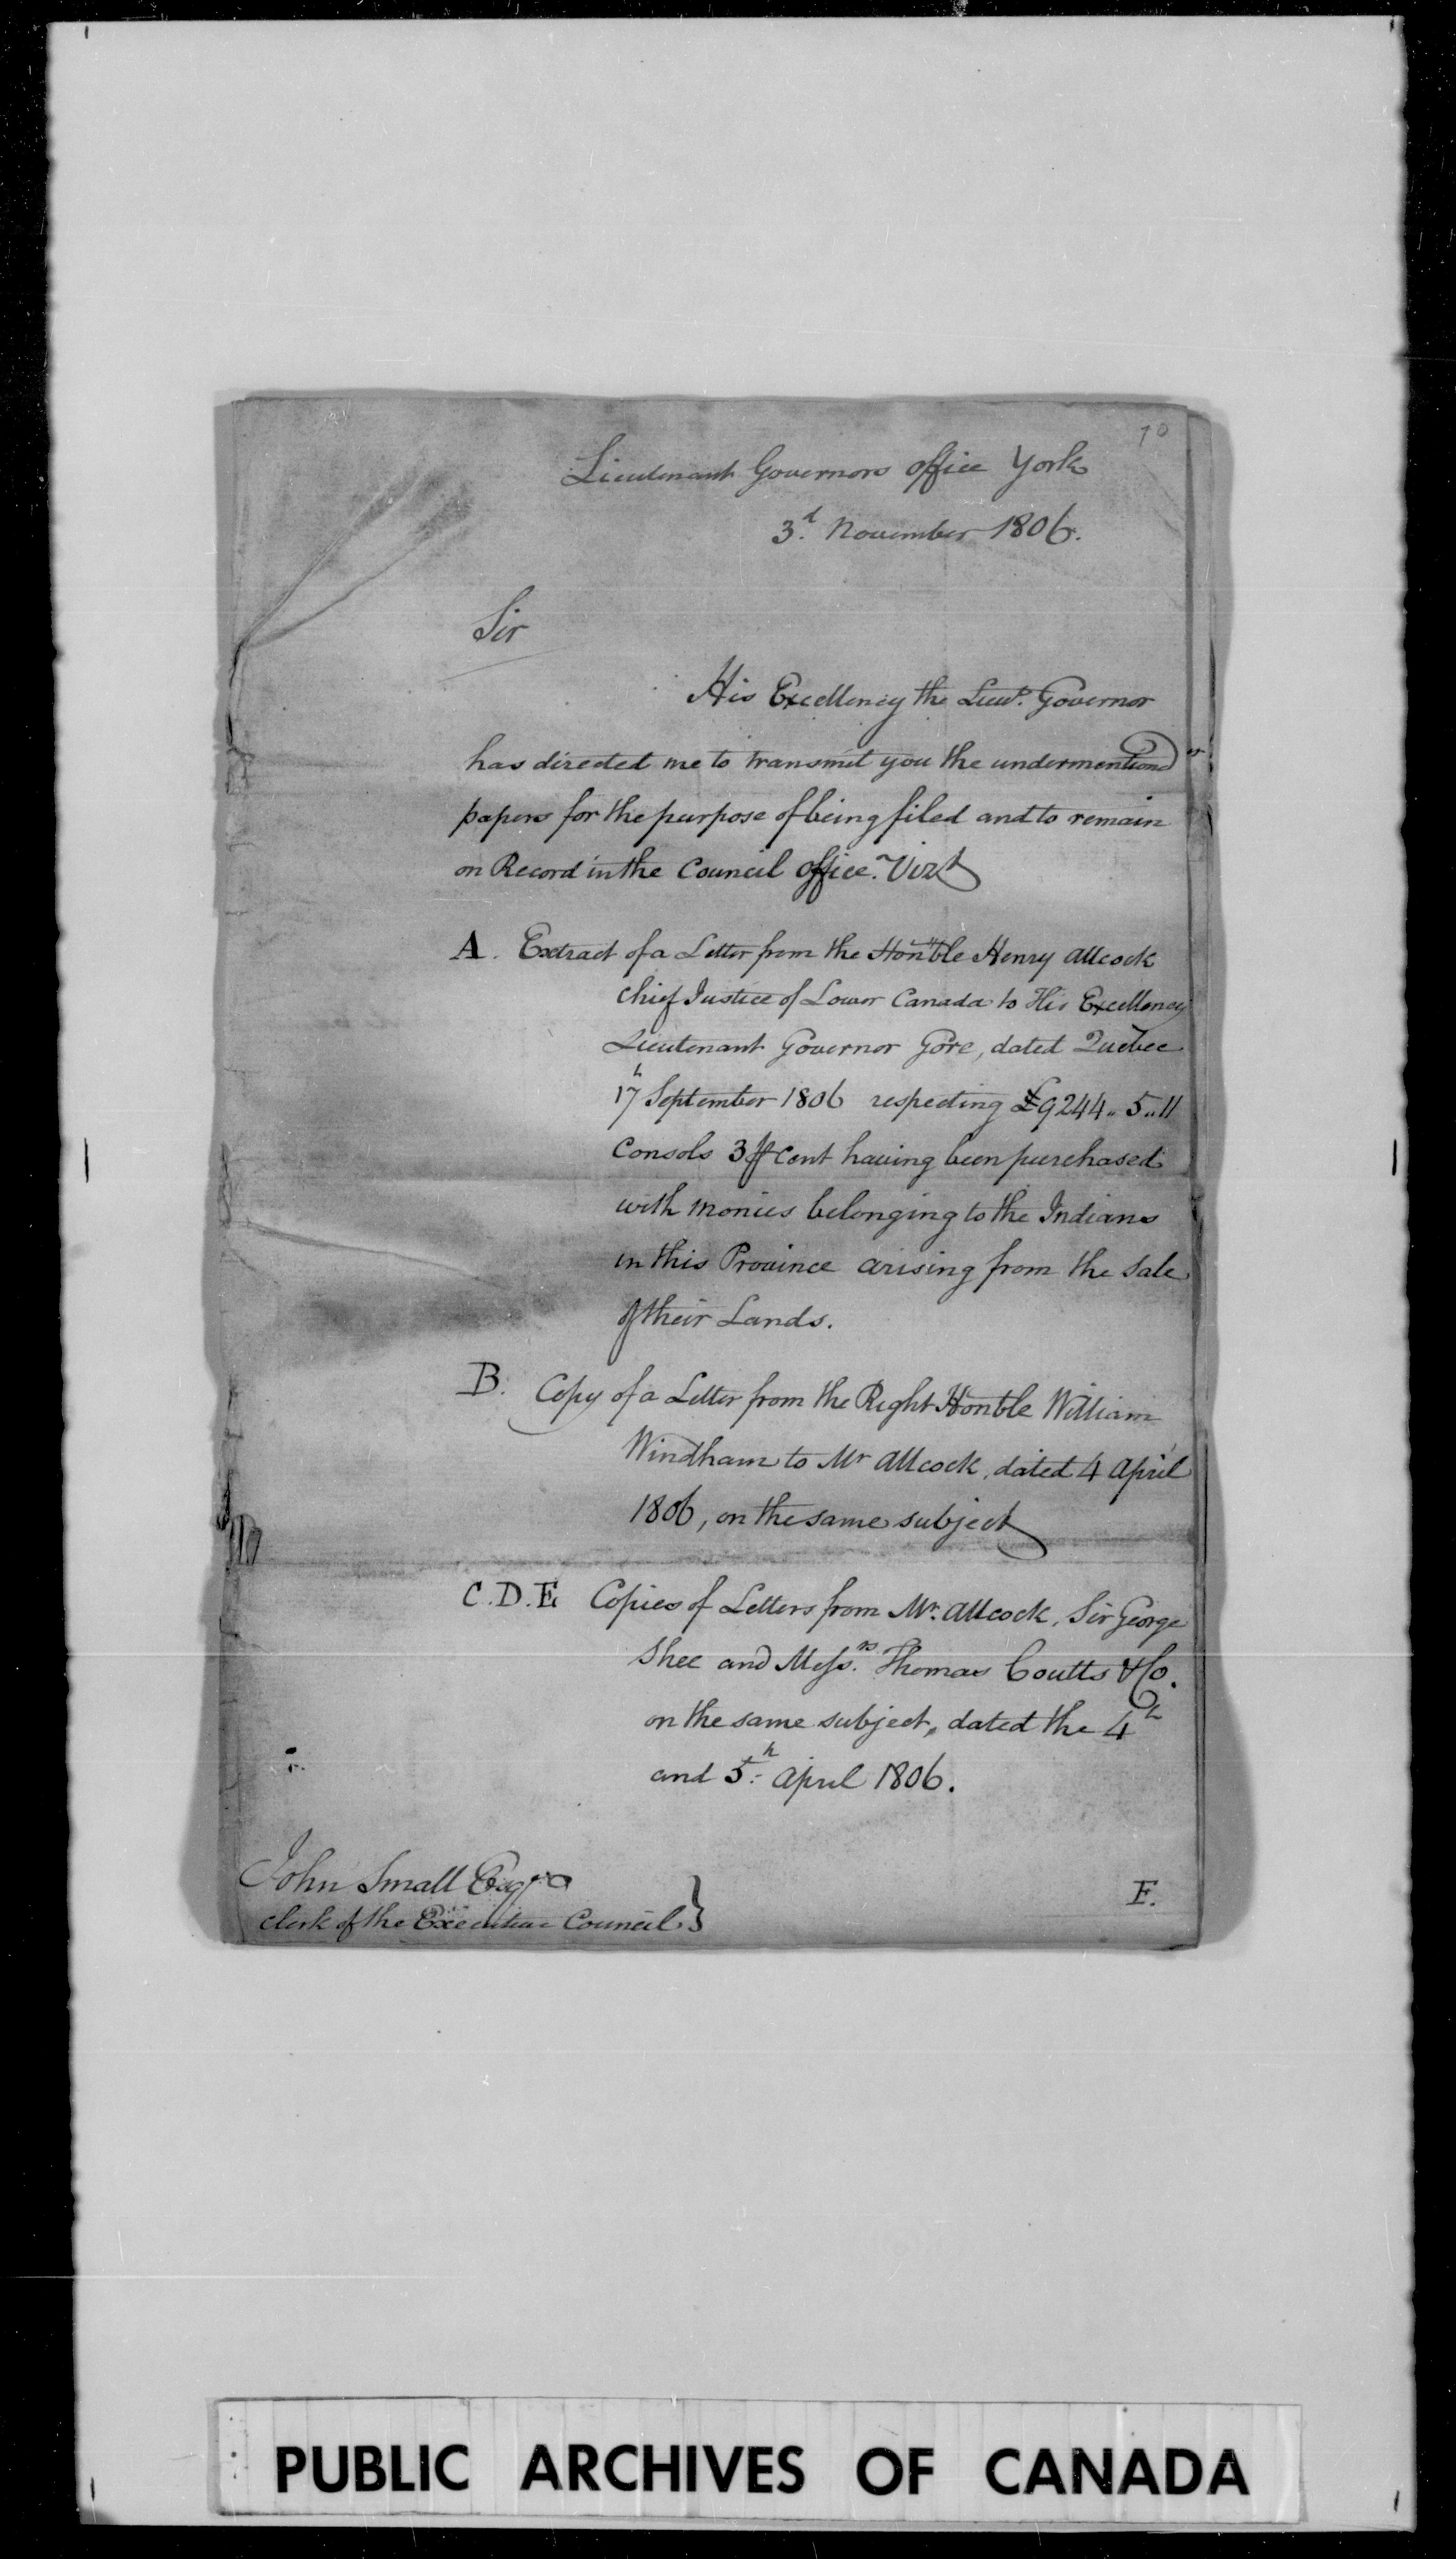 70
Lieutenant Governors office York
3d. November 1806.
Sir
His Excellency the Lieut. Governor
has directed me to transmit you the undermentiond
papers for the purpose of being filed and to remain
on Record in the Council office. Vizt
A. Extract of a Letter from the Honble Henry Allcock
Chief Justice of Lower Canada to His Excellency
Lieutenant Governor Gore, dated Quebec
17h September 1806 respecting £9244..5..11
Consols 3 ⅌ Cent having been purchased
with monies belonging to the Indians
in this Province arising from the Sale
of their Lands.
B. Copy of a Letter from the Right Honble William
Windham to Mr Allcock, dated 4 April
1806, on the same subject
C.D.E Copies of Letters from Mr. Allcock, Sir George
Shee and Messrs. Thomas Coutts & Co.
on the same subject, dated the 4h
and 5h. April 1806.
John Small Esqr
Clerk of the Executive Council }
F.
PUBLIC ARCHIVES OF CANADA